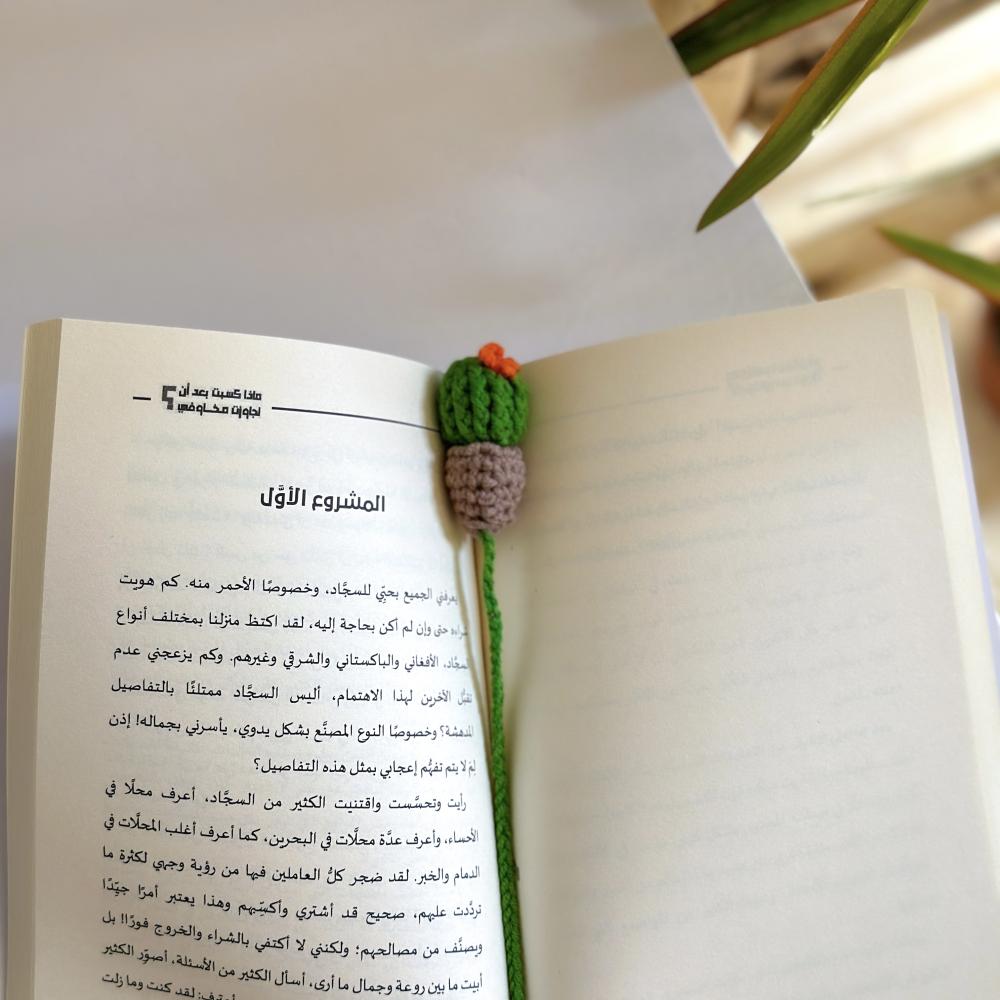 ماذا كسبت بعد أن
تجاوزت مخاوفي ؟
المشروع الأوَّل
يعرفني الجميع بحبِّي للسجَّاد، وخصوصًا الأحمر منه. كم هويت
شراءه حتى وإن لم أكن بحاجة إليه، لقد اكتظ منزلنا بمختلف أنواع
السجَّاد، الأفغاني والباكستاني والشرقي وغيرهم. وكم يزعجني عدم
تقبُّل الآخرين لهذا الاهتمام، أليس السجَّاد ممتلئًا بالتفاصيل
المدهشة؟ وخصوصًا النوع المصنَّع بشكل يدوي، يأسرني بجماله! إذن
لِمَ لا يتم تفهُّم إعجابي بمثل هذه التفاصيل؟
رأيت وتحسَّست واقتنيت الكثير من السجَّاد، أعرف محلًا في
الأحساء، وأعرف عدَّة محلَّات في البحرين، كما أعرف أغلب المحلَّات في
الدمام والخبر. لقد ضجر كلُّ العاملين فيها من رؤية وجهي لكثرة ما
تردَّدت عليهم، صحيح قد أشتري وأكسِّبهم وهذا يعتبر أمرًا جيِّدًا
ويصنَّف من مصالحهم؛ ولكنني لا أكتفي بالشراء والخروج فورًا!! بل
أبيت ما بين روعة وجمال ما أرى، أسأل الكثير من الأسئلة، أصوّر الكثير
لقد كنت وما زلت